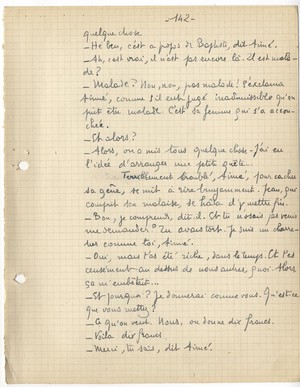 -142-
quelque chose.
– Hé ben, c'est à propos de Baptiste, dit Aimé.
– Ah, c'est vrai, il n'est pas encore là. Il est mala-
de ?
– Malade ? Non, non, pas malade ! s'exclama
Aimé, comme s'il eut jugé inadmissible qu'on
put être malade. C'est sa femme qui s'a accou-
chée.
– Et alors ?
– Alors, on a mis tous quelque chose. J'ai eu
l'idée d'arranger une petite quête.
Terriblement troublé, Aimé, pour cacher
sa gêne, se mit à rire bruyamment. Jean, qui
comprit son malaise, se hâta d'y mettre fin.
– Bon, je comprends, dit-il. Et tu n'osais pas venir
me demander ? Tu avais tort. Je suis un charre-
tier comme toi, Aimé.
– Oui, mais t'as été riche, dans le temps. Et t'es
censément au-dessus de nous autres, quoi. Alors
ça m'embêtait...
– Et pourquoi ? Je donnerai comme vous. Qu'est-ce
que vous mettez ?
– Ce qu'on veut. Nous, on donne dix francs.
– Voilà dix francs.
– Merci, tu sais, dit Aimé.